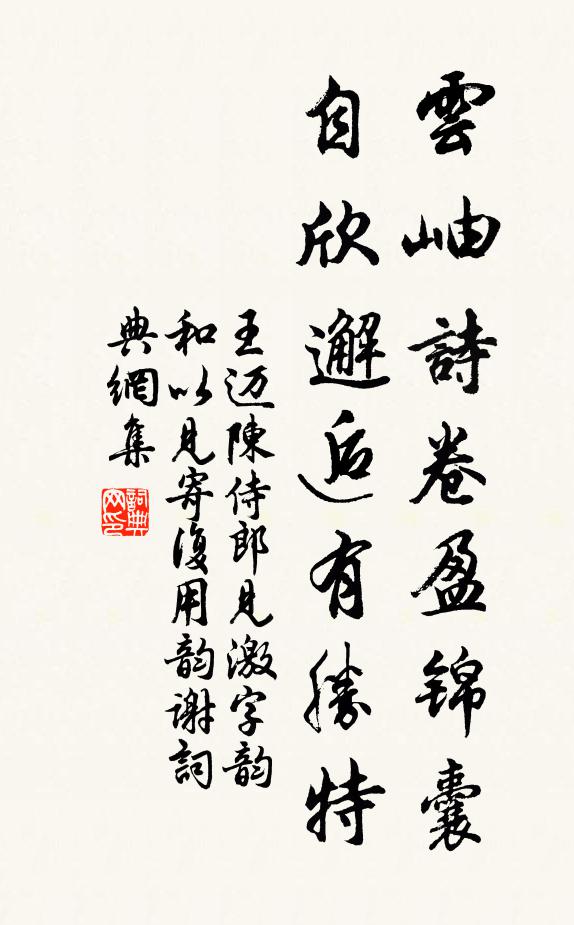 雲岫詩卷盈錦囊
自欣邂逅有勝特
王迈陳侍郎見激字韵
和以見寄復用韵谢詞
典網集
詞典网印